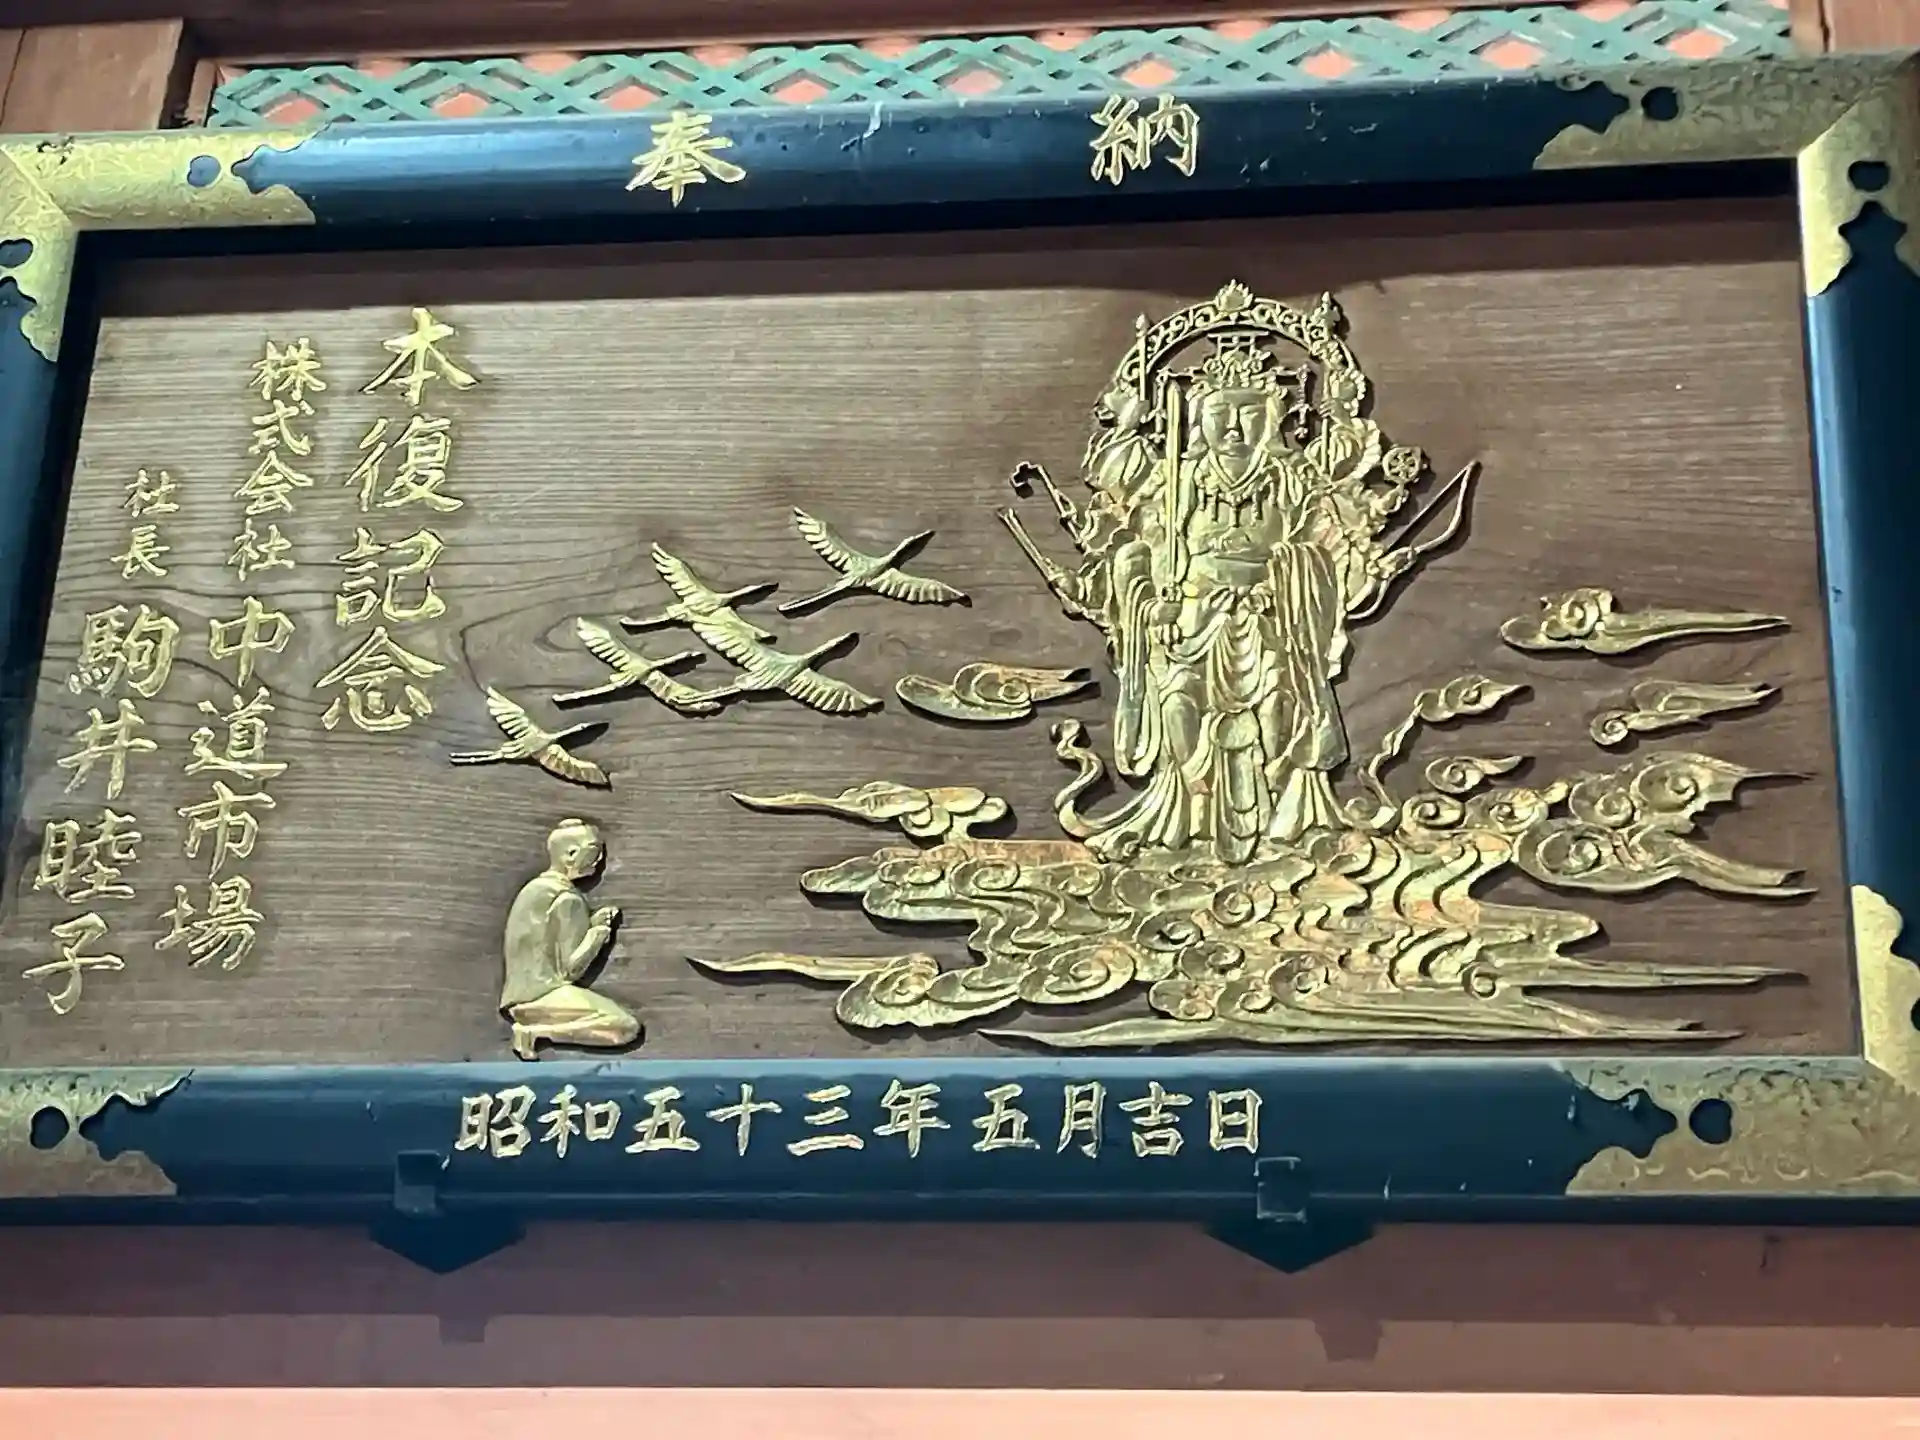 奉納
本復記念
株式会社中道市場
社長 駒井睦子
昭和五十三年五月吉日